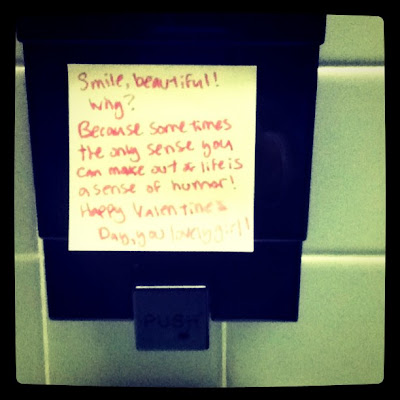 Smile, beautiful!
Why?
Because sometimes
the only sense you
can make out of life is
a sense of humor!
Happy Valentine's
Day, you lovely girl!
PUSH